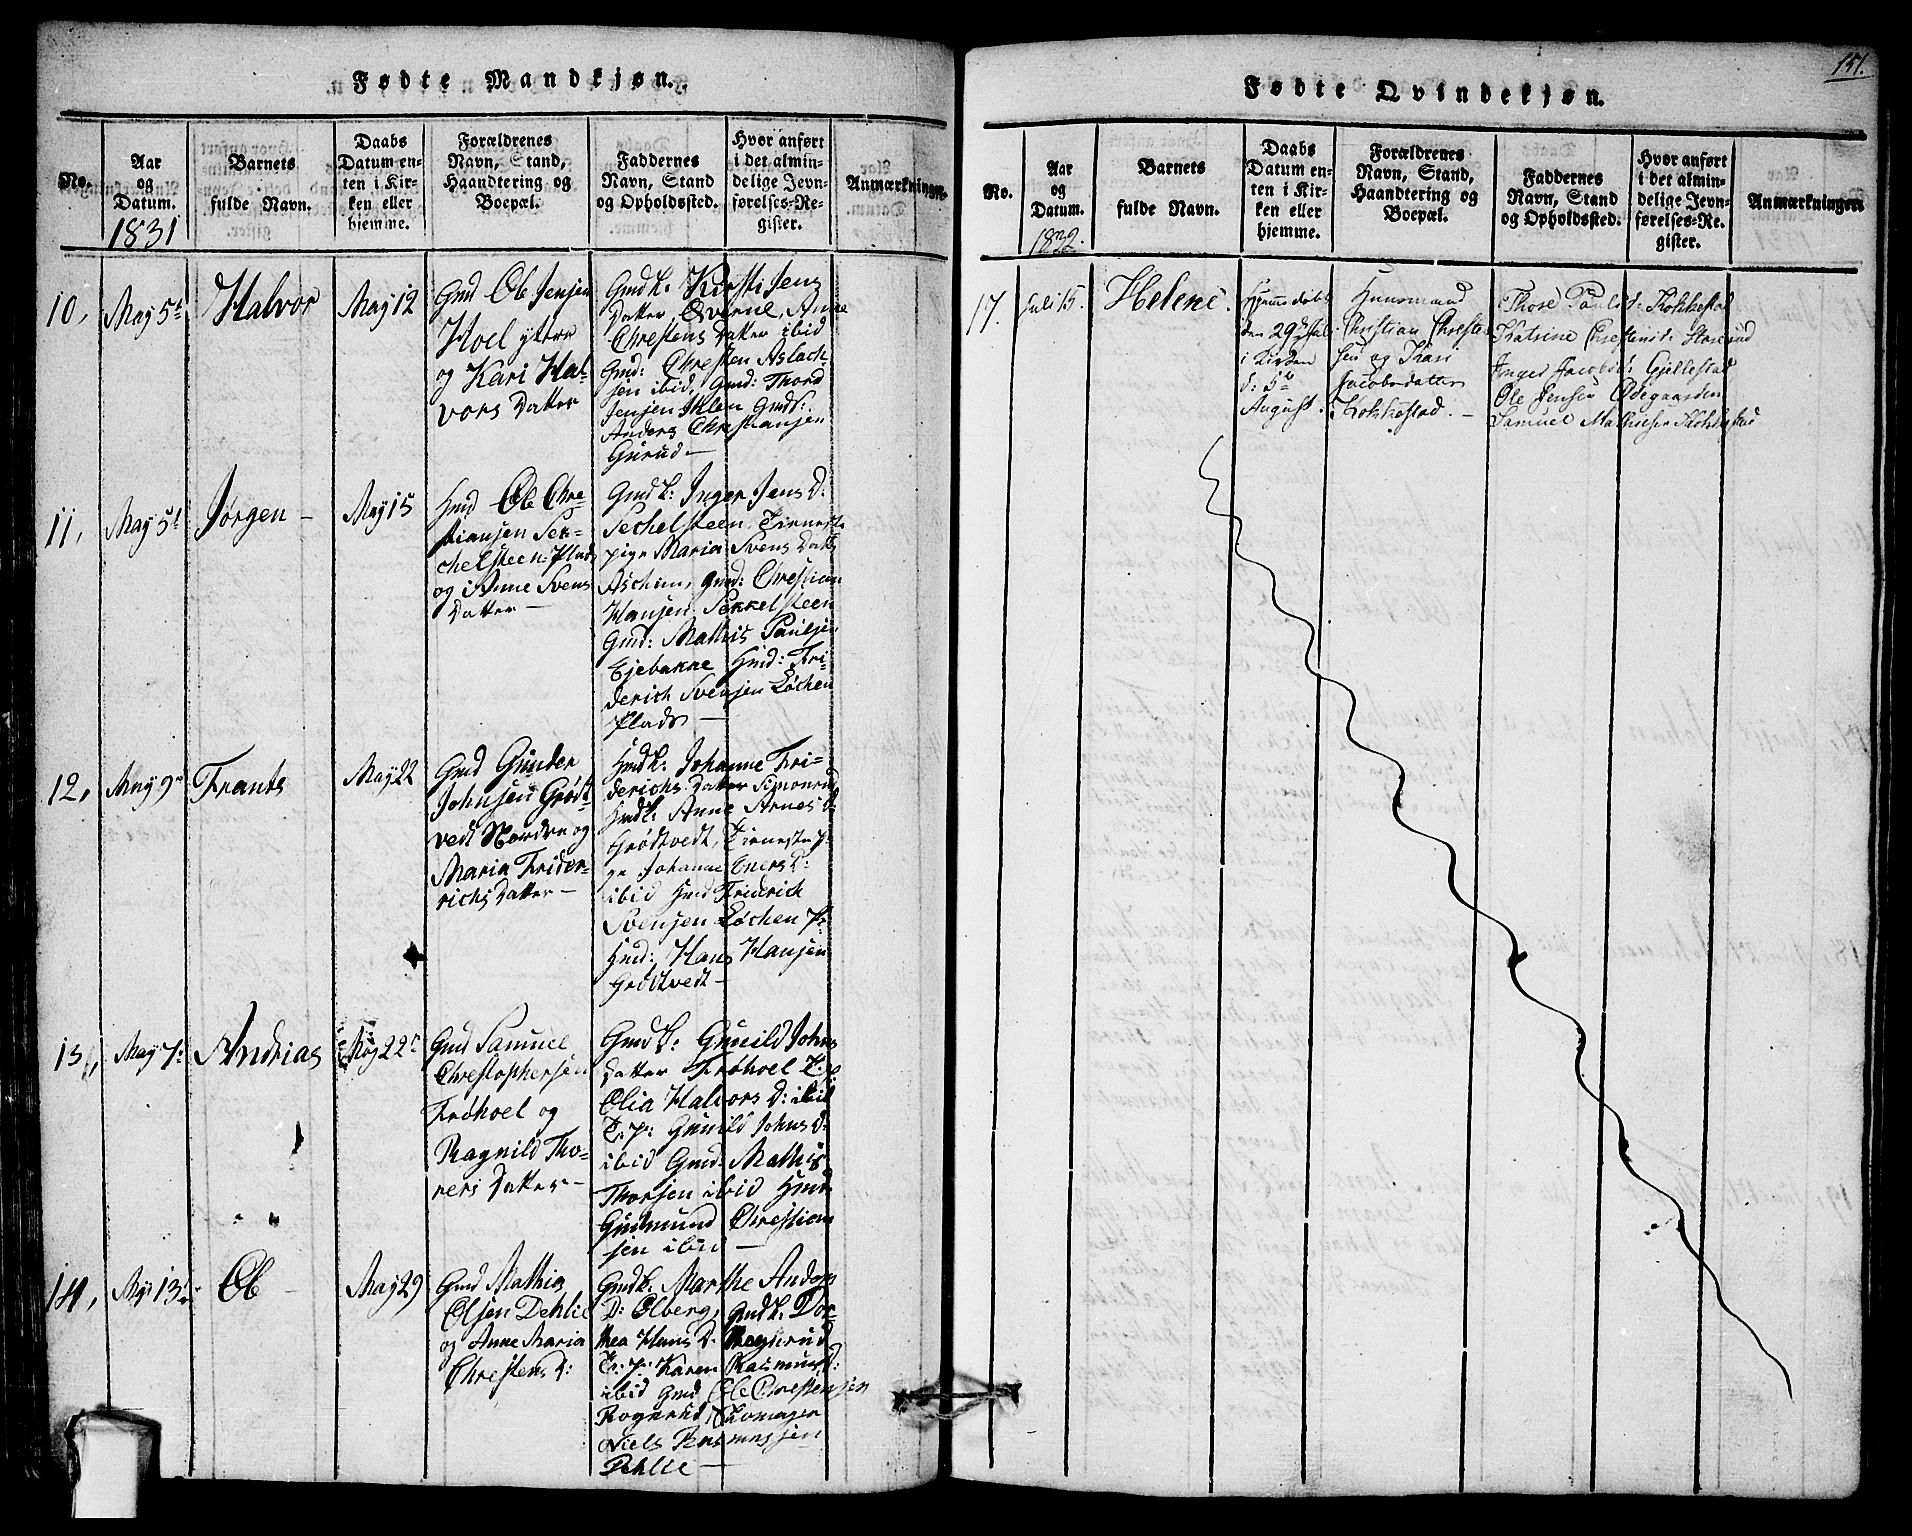 Fødte Mandkjøn.
No.
Aar
og
Datum.
1831
Barnets
fulde Navn.
Daabs
Datum en-
ten i Kir-
ken eller
hjemme.
Forældrenes
Navn, Stand,
Haandtering og
Boepæl.
Faddernes
Navn, Stand
og Opholdssted.
Hvor anført
i det almin-
delige Jevn-
førelses-Re-
gister.
Anmærkninger.
10,
May 5t
Halvor
May 12
Gmd Ole Jensen
Hoel ytter
og Kari Hal-
vors Datter
Gmdk: Kirsti Jens
Datter, Qverne, Anne
Chrestens Datter ibid
Gmd: Chresten Aslach-
sen ibid, Gmd: Thord
Jensen Ihlen Gmds:
Anders Christiansen
Gurud —
11,
May 5t
Jørgen —
May 15
Hmd Ole Chre-
stiansen Sek-
chelsteen: Plads
og Anne Svens
Datter —
Gmdk: Inger Jens D:
Sechelsteen, Tieneste
pige Maria Svens Datt:
Aschim, Gmd: Chrestian
Hansen Sekkelsteen
Gmd: Mathis Paulsen
Ejebakke Hmd: Fri-
derich Svensen Løchen
Plads —
12,
May 9
Frants
May 22
Gmd Gunder
Johnsen Grødt-
vedt Nordre og
Maria Frider-
richs Datter —
Hmdk: Johanne Fri-
derichs Datter Simonrud
Hmdk: Anne Arnes D:
Grødtvedt, Tienestepi-
ge Johanne Evers D:
ibid Hmd Friderich
Svensen Løchen Pl:
Hmd: Hans Hansen
Grødtvedt —
13,
May 7:
Andrias
May 22
Gmd Samuel
Christophersen
Frøhoel og
Ragnild Tho-
rers Datter —
Gmdk: Gunild Johns
Datter Frøhoel T:p:
Olia Halvors D: ibid
T:p: Gunild Johns D:
ibid Gmd: Mathis
Thorsen ibid Hmd
Gudmund Chrestian
sen ibid —
14,
May 13
Ole —
May 29
Gmd Mathia
Olsen Dehlie
og Anne Maria
Chrestens D:
Gmdk: Marthe Anders
D: Olberg, Gmdk: Dor-
thea Hans D: Rognerud
T:p: Karen Rasmus D:
ibid Gmd Ole Chrestensen
Rognerud,
Niels Rasmussen
Dehlie —
151.
Fødte Qvindekjøn.
No.
Aar
og
Datum.
1832.
Barnets
fulde Navn.
Daabs
Datum en-
ten i Kir-
ken eller
hjemme.
Forældrenes
Navn, Stand,
Haandtering og
Boepæl.
Faddernes
Navn, Stand
og Opholdssted.
Hvor anført
i det almin-
delige Jevn-
førelses-Re-
gister.
Anmærkninger
17.
Juli 15.
Helene.
Hjemmedøbt
den 29de Juli
i Kirken
d: 5te
August.
Huusmand
Christian Christen-
sen og Kari
Jacobsdatter
Kokkestad. —
Thore Paulsd: Kokkestad
Katrine Christensd: Storerud
Inger Jacobsd: Gjellestad
Ole Jensen Ødegaarden
Samuel Mathiesen Kokkestad